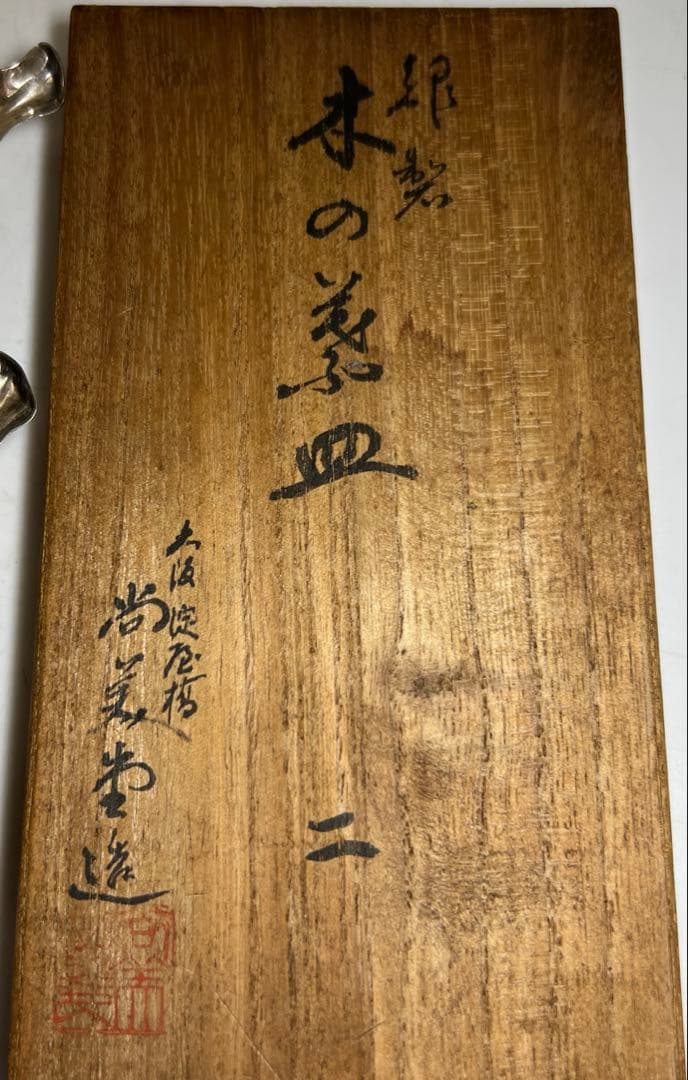 銀製
木の葉皿
二
大阪淀屋橋
尚美堂造